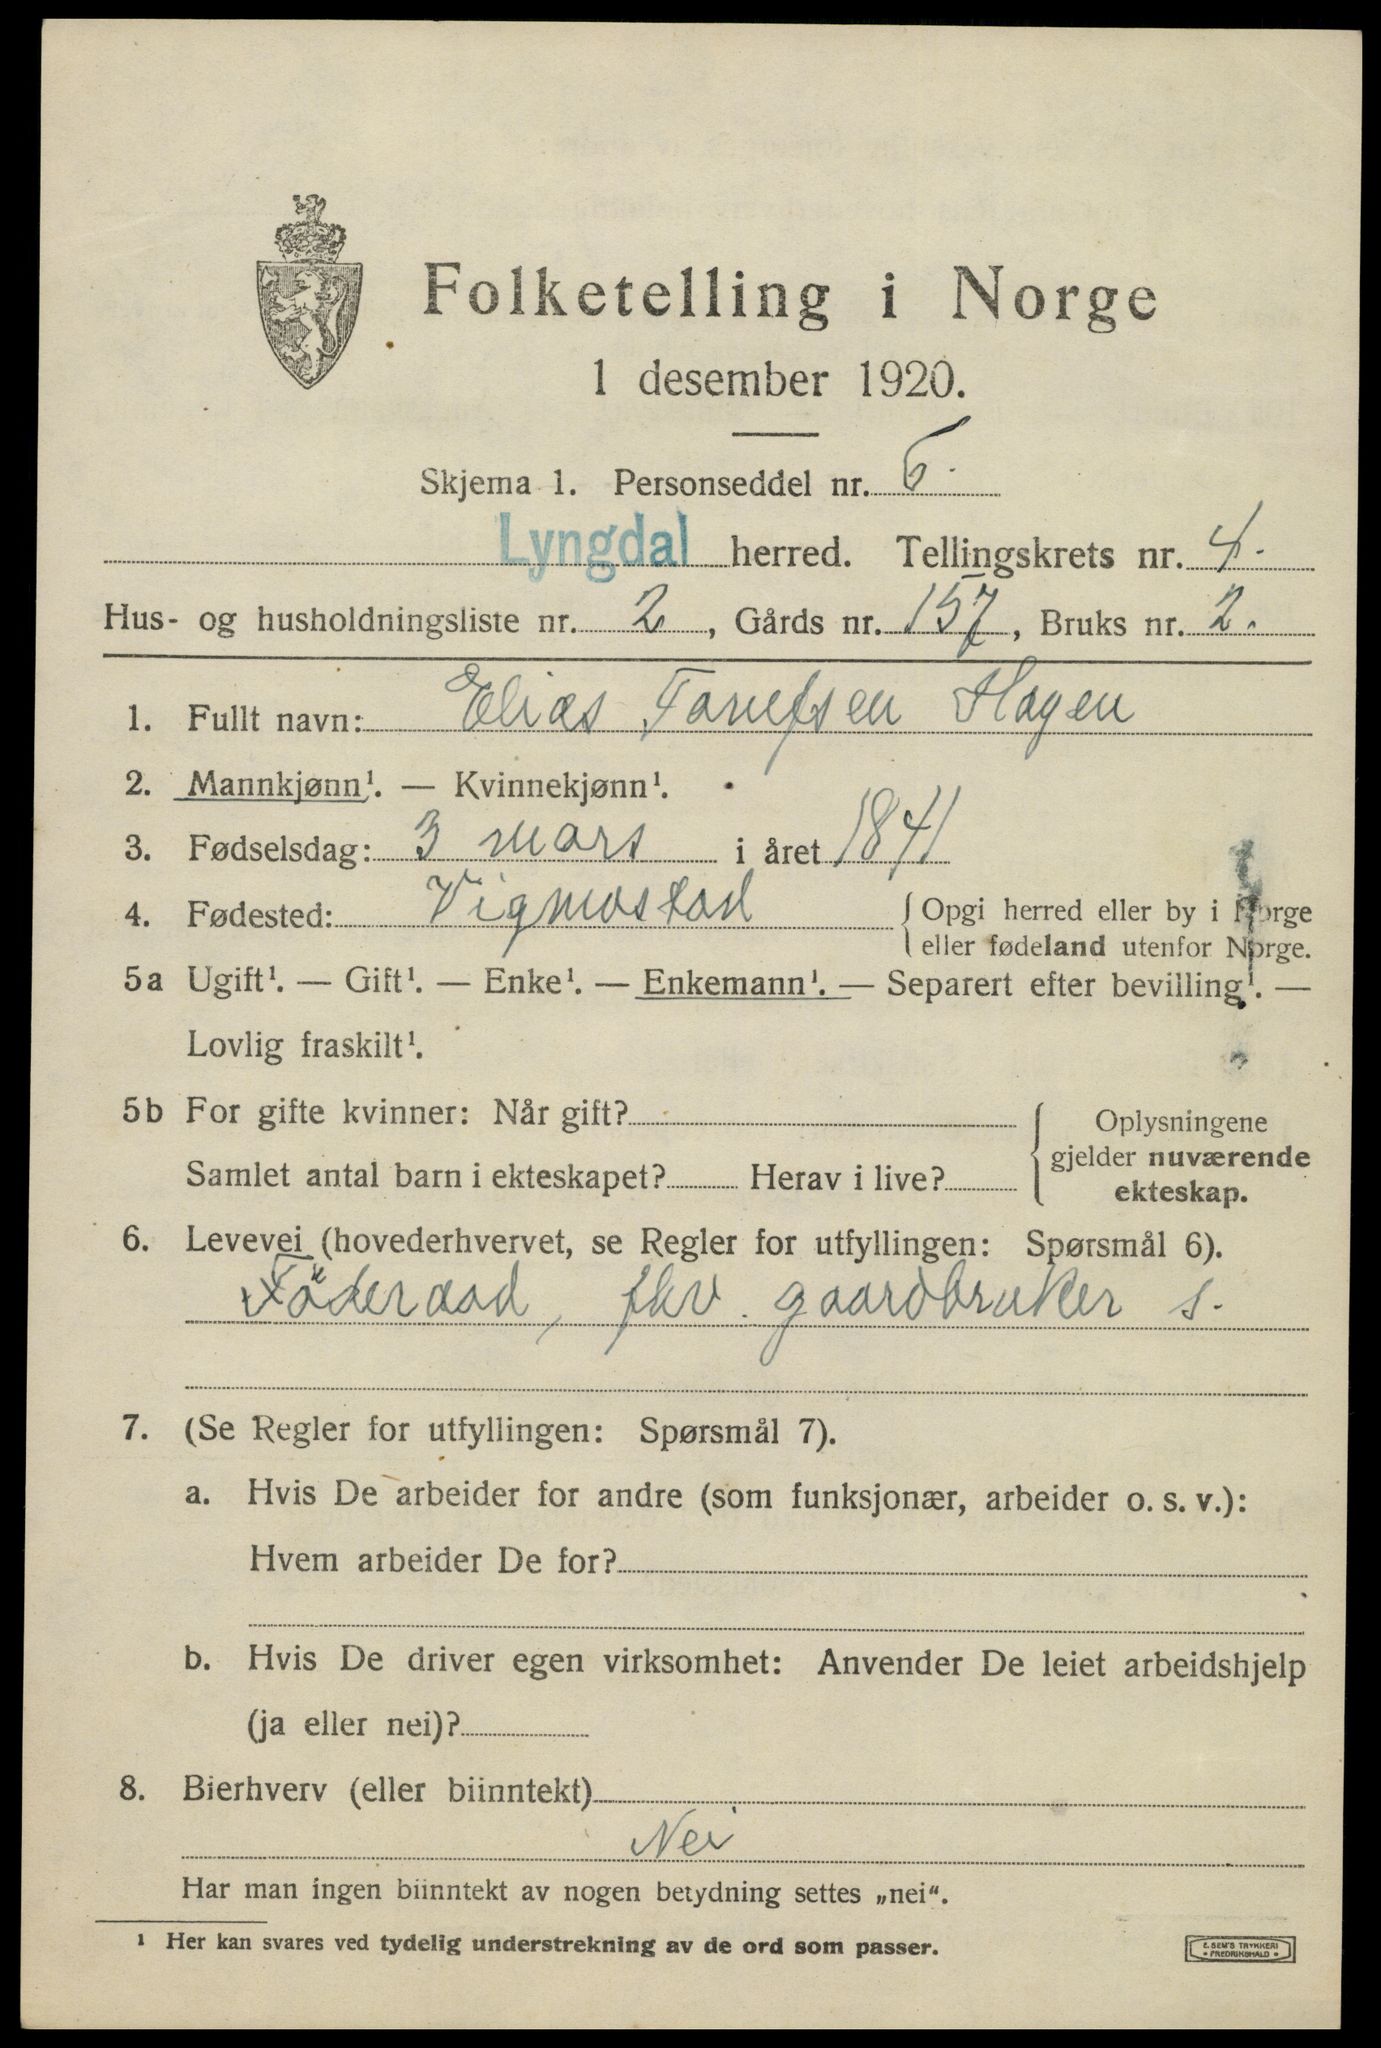 Folketelling i Norge
1 desember 1920.
Skjema 1. Personseddel nr. 6.
Lyngdal herred. Tellingskrets nr. 4.
Hus- og husholdningsliste nr. 2, Gårds nr. 157, Bruks nr. 2.
1. Fullt navn: Elias Hagen
2. Mannkjønn¹. — Kvinnekjønn¹.
3. Fødselsdag: 3 mars i året 1841
4. Fødested: Vigmostad { Opgi herred eller by i Norge
eller fødeland utenfor Norge.
5a Ugift¹. — Gift¹. — Enke¹. — Enkemann¹. — Separert efter bevilling¹. —
Lovlig fraskilt¹.
5b For gifte kvinner: Når gift?
Samlet antal barn i ekteskapet? Herav i live?
{ Oplysningene
gjelder nuværende
ekteskap.
6. Levevei (hovederhvervet, se Regler for utfyllingen: Spørsmål 6).
Föderaad, fhv. gaardbruker s.
7. (Se Regler for utfyllingen: Spørsmål 7).
a. Hvis De arbeider for andre (som funksjonær, arbeider o. s. v.):
Hvem arbeider De for?
b. Hvis De driver egen virksomhet: Anvender De leiet arbeidshjelp
(ja eller nei)?
8. Bierhverv (eller biinntekt)
Nei
Har man ingen biinntekt av nogen betydning settes „nei“.
¹ Her kan svares ved tydelig understrekning av de ord som passer.
E. SEM'S TRYKKERI
• FREDRIKSHALD •